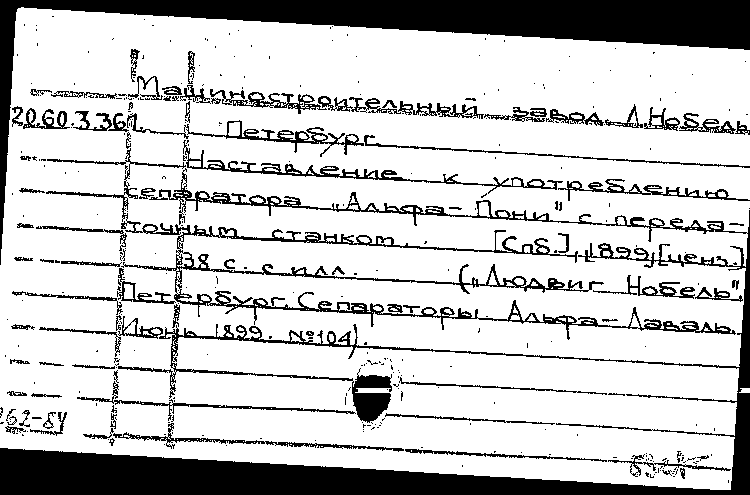 Машиностроительный завод. Л.Нобель
20.60.3.361. Петербург.
Наставление к употреблению
сепаратора „Альфа-Пони" с переда-
точным станком. [Спб.], 1899, [ценз.]
38 с. с илл. („Людвиг Нобель".
Петербург. Сепараторы Альфа-Лаваль.
Июнь 1899. №104).
262-84